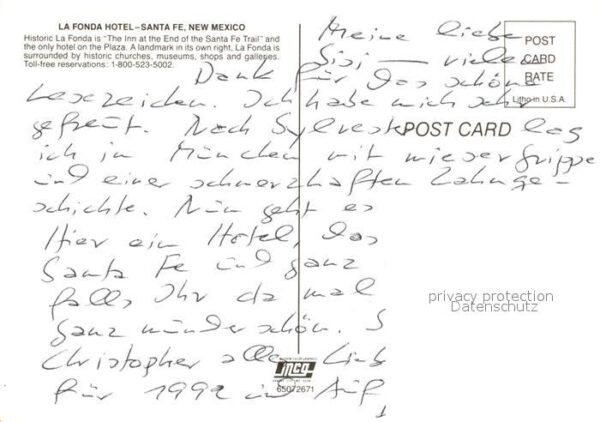 LA FONDA HOTEL–SANTA FE, NEW MEXICO
Historic La Fonda is "The Inn at the End of the Santa Fe Trail" and
the only hotel on the Plaza. A landmark in its own right, La Fonda is
surrounded by historic churches, museums, shops and galleries.
Toll-free reservations: 1-800-523-5002.
POST
CARD
RATE
Litho in U.S.A.
Meine liebe
Sisi — vielen
Dank für das schöne
Lesezeichen. Ich habe mich sehr
gefreut. Nach Sylvester lag
POST CARD
ich in München mit Mieser Grippe
und einer schmerzhaften Zahnge-
schichte. Nun geht es
Hier ein Hotel, das
Santa Fe und ganz
falls Ihr da mal
ganz wunderschön.
Christopher alles Lieb
für 1992 und Auf
privacy protection
Datenschutz
mca
65072671